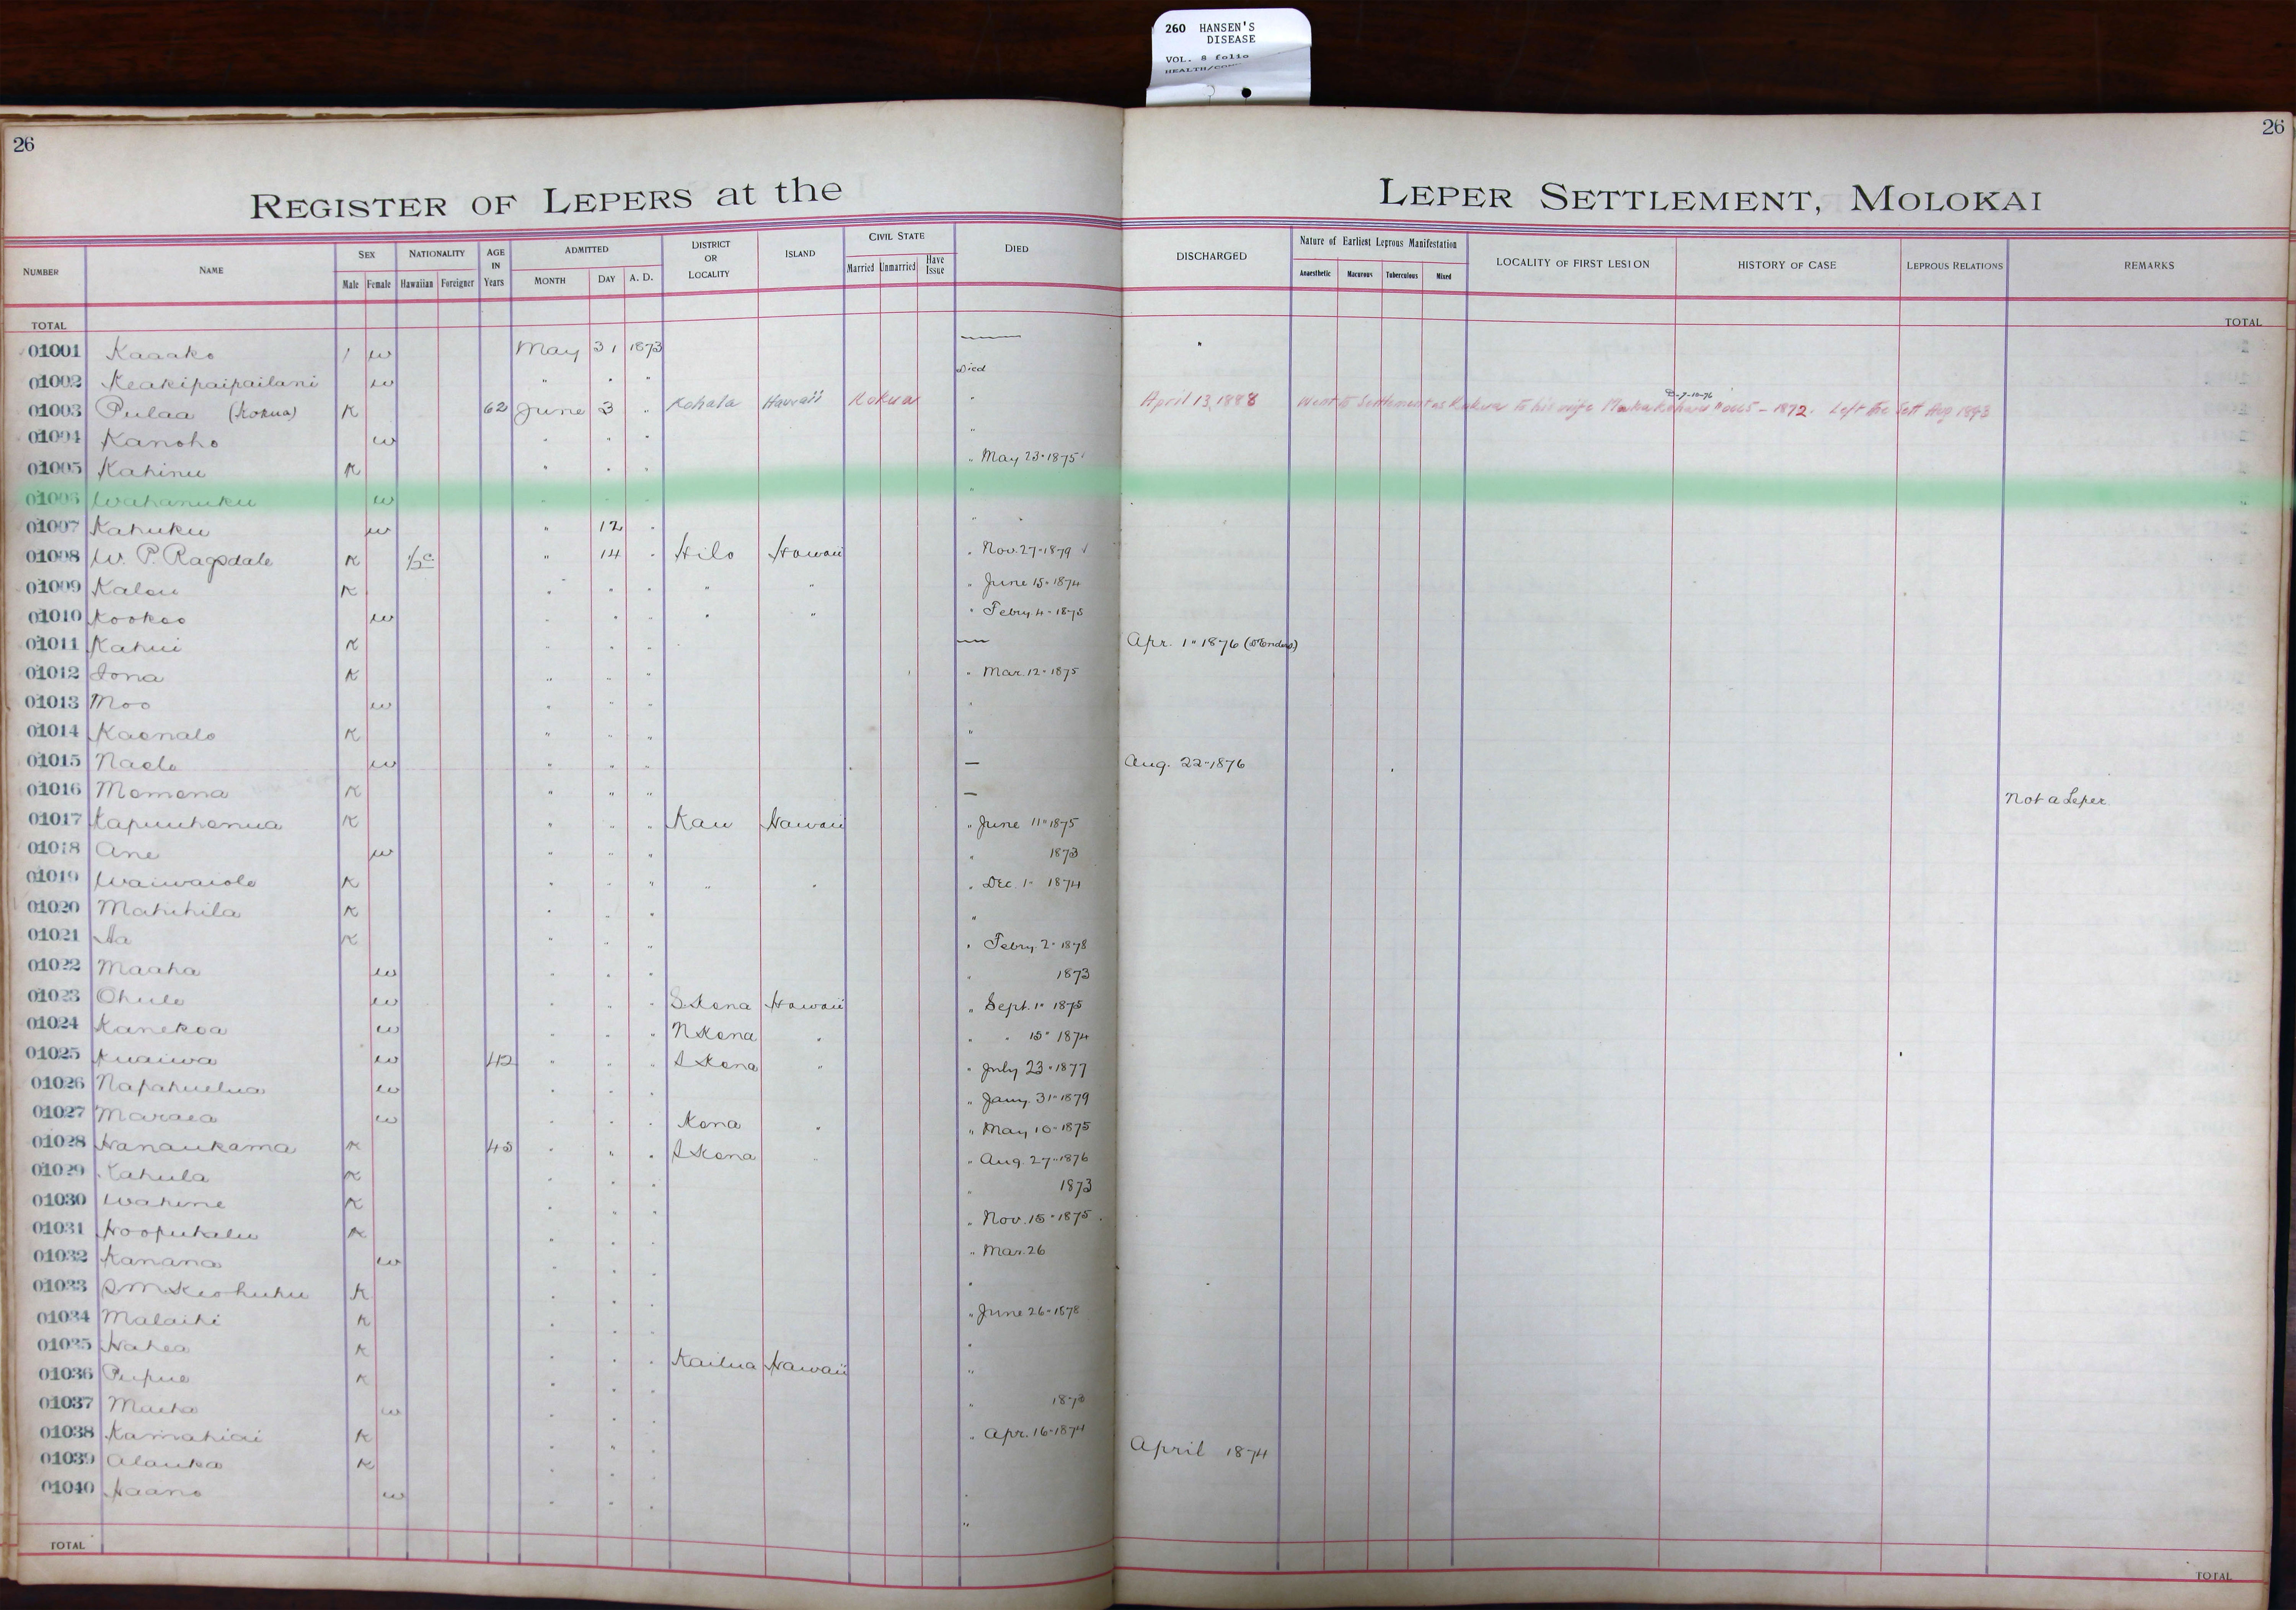 260 HANSEN'S
DISEASE
VOL. 8 folio
HEALTH/
26
26
REGISTER OF LEPERS at the LEPER SETTLEMENT, MOLOKAI
NUMBER NAME SEX NATIONALITY AGE IN Years ADMITTED DISTRICT OR LOCALITY ISLAND CIVIL STATE DIED DISCHARGED Nature of Earliest Leprous Manifestation LOCALITY OF FIRST LESION HISTORY OF CASE LEPROUS RELATIONS REMARKS
Male Female Hawaiian Foreigner MONTH DAY A. D. Married Unmarried Have Issue Anaesthetic Macurous Tuberculous Mixed
TOTAL TOTAL
01001 Kaaako / w May 31 1873 — "
01002 Keakipaipailani w " " " Died
01003 Pulaa (Kokua) K 62 June 3 " Kohala Hawaii Kokua " April 13, 1888 Went to Settlement as Kokua to his wife - 1872. Left the Sett Aug 1893
01004 Kanoho w " " " "
01005 Kahinu K " " " " May 23 " 1875
01006 Wahanuku w " " " "
01007 Kahuku w " 12 " "
01008 W. P. Ragsdale K 1/2 c " 14 " Hilo Hawaii " Nov. 27 " 1879
01009 Kalou K " " " " " " June 15 " 1874
01010 Kookoo w " " " " " " Febry 4 - 1875
01011 Kahui K " " " — Apr. 1 " 1876
01012 Iona K " " " " Mar. 12 " 1875
01013 Moo w " " " "
01014 Kaonalo K " " " "
01015 Naele w " " " — Aug. 22 - 1876
01016 Momona K " " " — Not a Leper
01017 Kapuuhonua K " " " Kau Hawaii " June 11 " 1875
01018 Ane w " " " " 1873
01019 Waiwaiole K " " " " " " Dec. 1 " 1874
01020 Mahihila K " " " "
01021 Aa K " " " " Febry. 2 " 1878
01022 Maaha w " " " " 1873
01023 Ohule w " " " S. Kona Hawaii " Sept. 1 " 1875
01024 Kanekoa w " " " N Kona " " " 15 " 1874
01025 Kuaiwa w 42 " " " S Kona " " July 23 " 1877
01026 Napahuelua w " " " " Jany. 31 " 1879
01027 Maraea w " " " Kona " " May 10 " 1875
01028 Hanaukama K 45 " " " S Kona " " Aug. 27 " 1876
01029 Kahula K " " " " 1873
01030 Wahine K " " " " Nov. 15 " 1875
01031 Hoopukalu K " " " " Mar. 26
01032 Kanana w " " " "
01033 S M Keohuhu K " " " " June 26 " 1878
01034 Malaihi K " " " "
01035 Hahea K " " " Kailua Hawaii "
01036 Pupue K " " " " 1873
01037 Maeha w " " " " Apr. 16 " 1874
01038 Kamahiai K " " " April 1874
01039 Alauka K " " " "
01040 Haano w " " " "
TOTAL TOTAL